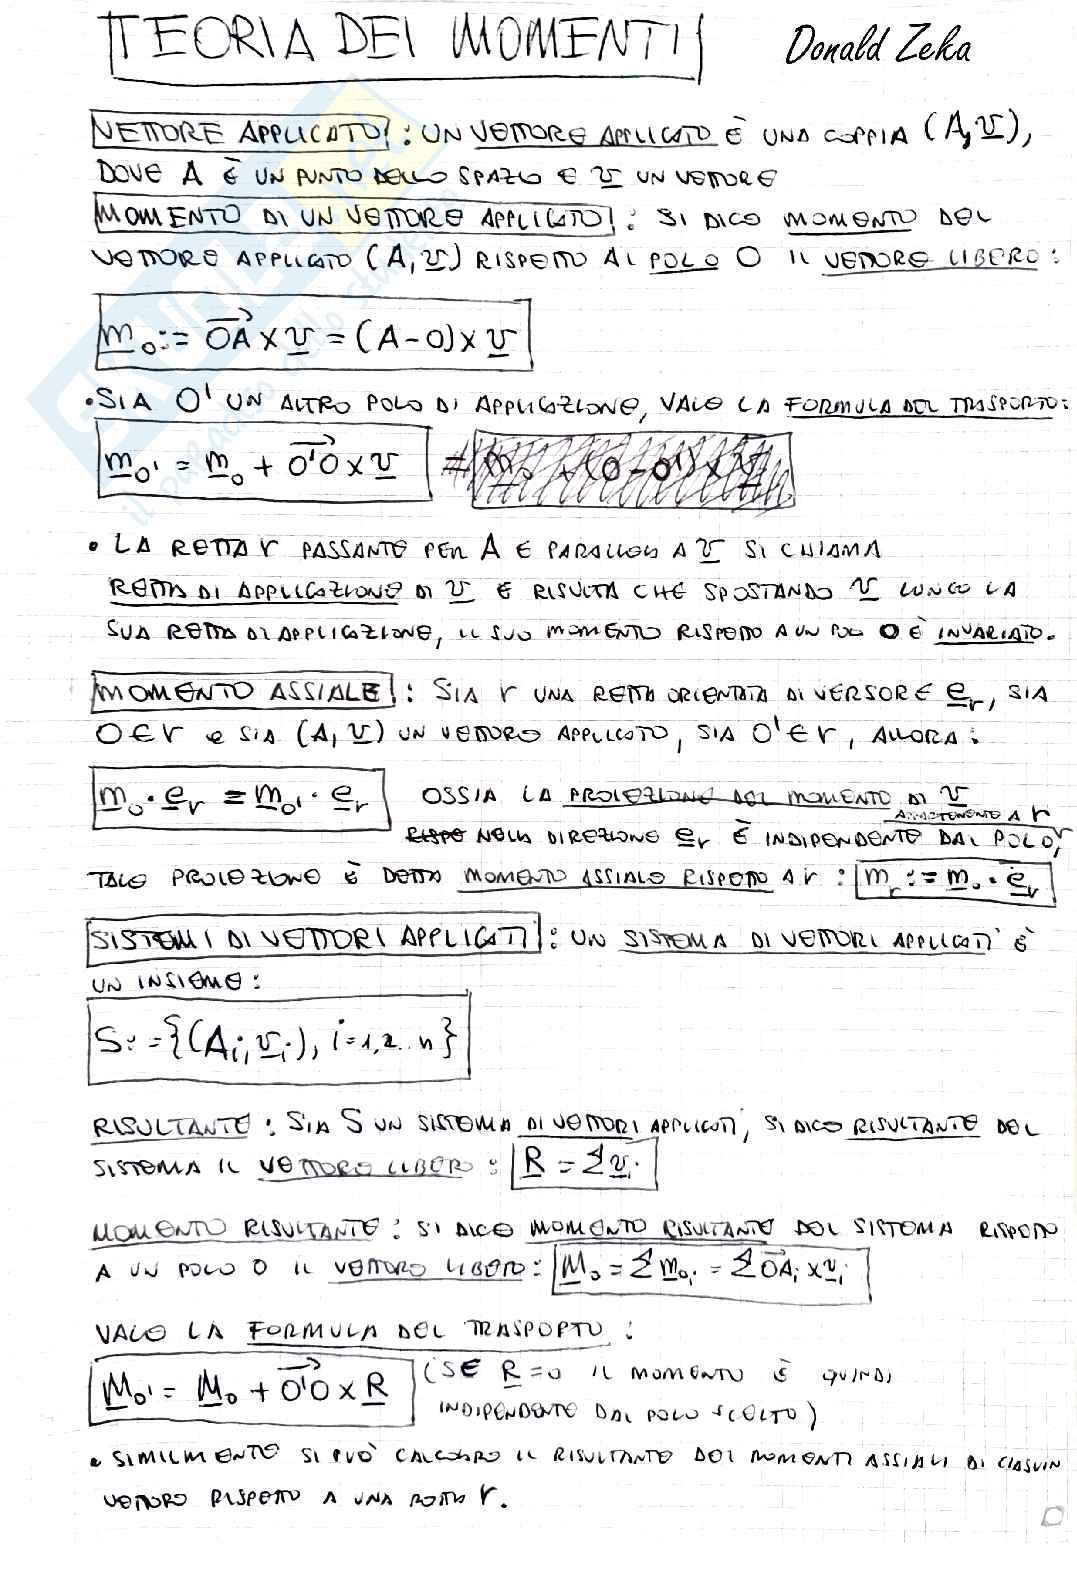 TEORIA DEI MOMENTI
Donald Zeka
VETTORE APPLICATO: UN VETTORE APPLICATO È UNA COPPIA (A, v),
DOVE A È UN PUNTO DELLO SPAZIO E v UN VETTORE
MOMENTO DI UN VETTORE APPLICATO: SI DICE MOMENTO DEL
VETTORE APPLICATO (A, v) RISPETTO AL POLO O IL VETTORE LIBERO:
m_O := OA × v = (A - O) × v
• SIA O' UN ALTRO POLO DI APPLICAZIONE, VALE LA FORMULA DEL TRASPORTO:
m_O' = m_O + O'O × v
• LA RETTA r PASSANTE PER A E PARALLELA A v SI CHIAMA
RETTA DI APPLICAZIONE DI v E RISULTA CHE SPOSTANDO v LUNGO LA
SUA RETTA DI APPLICAZIONE, IL SUO MOMENTO RISPETTO A UN POLO O È INVARIATO.
MOMENTO ASSIALE: SIA r UNA RETTA ORIENTATA DI VERSORE e_r, SIA
O ∈ r e SIA (A, v) UN VETTORE APPLICATO, SIA O' ∈ r, ALLORA:
m_O · e_r = m_O' · e_r OSSIA LA PROIEZIONE DEL MOMENTO DI v
NELLA DIREZIONE e_r È INDIPENDENTE DAL POLO, APPARTENENTE A r
TALE PROIEZIONE È DETTA MOMENTO ASSIALE RISPETTO A r: m_r := m_O · e_r
SISTEMI DI VETTORI APPLICATI: UN SISTEMA DI VETTORI APPLICATI È
UN INSIEME:
S := {(A_i, v_i), i = 1, 2.. n}
RISULTANTE: SIA S UN SISTEMA DI VETTORI APPLICATI, SI DICE RISULTANTE DEL
SISTEMA IL VETTORE LIBERO: R = Σ v_i
MOMENTO RISULTANTE: SI DICE MOMENTO RISULTANTE DEL SISTEMA RISPETTO
A UN POLO O IL VETTORE LIBERO: M_O = Σ m_Oi = Σ OA_i × v_i
VALE LA FORMULA DEL TRASPORTO:
M_O' = M_O + O'O × R (SE R = 0 IL MOMENTO È QUINDI
INDIPENDENTE DAL POLO SCELTO)
• SIMILMENTE SI PUÒ CALCOLARE IL RISULTANTE DEI MOMENTI ASSIALI DI CIASCUN
VETTORE RISPETTO A UNA RETTA r.